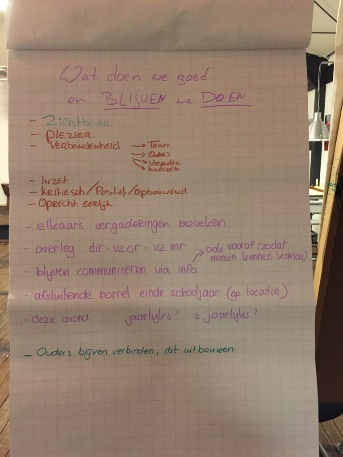 Wat doen we goed
en BLIJVEN we DOEN
- Zichtbaar
- PLEZIER.
- Verbondenheid → Team
→ Ouders
→ 
→ 
- INZET
- Kritisch / Positief / Opbouwend
- Oprecht eerlijk
- elkaars vergaderingen bezoeken
- overleg dir - vz or - vz mr
- blijven communiceren via info → ook vooraf (zodat mensen kunnen komen)
- afsluitende borrel einde schooljaar (op locatie)
- deze avond jaarlijks? 2 jaarlijks?
- Ouders blijven verbinden, dit uitbouwen